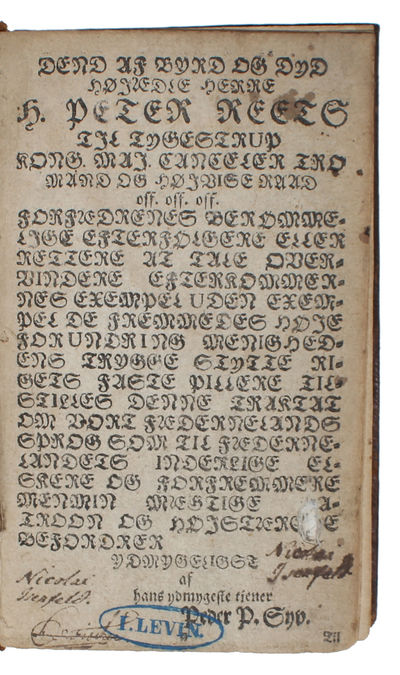 DEND AF BYRD OG DYD
HØJÆDLE HERRE
H. PETER REETS
TIL TYGESTRUP
KONG. MAJ. CANCELER TRO
MAND OG HØJVISE RAAD
off. off. off.
FORFÆDRENES BERØMME-
LIGE EFTERFØLGERE ELLER
RETTERE AT TALE OVER-
VINDERE EFTERKOMMER-
NES EXEMPEL UDEN EXEM-
PEL DE FREMMEDES HØJE
FORUNDRING MENIGHED-
ENS TRYGGE STYTTE RI-
GETS FASTE PILLERE TIL-
STILLES DENNE TRAKTAT
OM VORT FÆDERNELANDS
SPROG SOM TIL FÆDERNE-
LANDETS INDERLIGE EL-
SKERE OG FORFREMMERE
MENMIN MÆGTIGE A-
TROON OG HØJSTÆRE
BEFORDRER
YDMYGELIGST
af
hans ydmygeste tjener
Peder P. Syv.
Til
Nicolai
Isenfeldt.
Nicolai
Isenfeldt.
I. LEVIN.